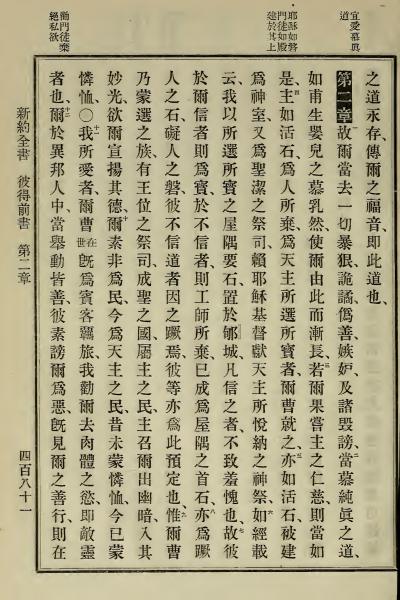 宜愛慕眞
道
耶穌如磐
門徒如殿
建於其上
勸門徒棄
絕私欲
之道永存、傳爾之福音、卽此道也、
第二章 一故爾當去一切暴狠詭譎僞善嫉妒、及諸毀謗、二當慕純眞之道、
如甫生嬰兒之慕乳然、使爾由此而漸長、三若爾果嘗主之仁慈、則當如
是、四主如活石、爲人所棄、爲天主所選所寶者、爾曹就之、五亦如活石、被建
爲神室、又爲聖潔之祭司、賴耶穌基督獻天主所悅納之神祭、六如經載
云、我以所選所寶之屋隅要石置於郇城、凡信之者、不致羞愧也、七故彼
於爾信者則爲寶、於不信者、則工師所棄、已成爲屋隅之首石、八亦爲蹶
人之石、礙人之磐、彼不信道者因之蹶焉、彼等亦爲此預定也、九惟爾曹
乃蒙選之族、有王位之祭司、成聖之國、屬主之民、主召爾出幽暗、入其
妙光、欲爾宣揚其德、十爾素非爲民、今爲天主之民、昔未蒙憐恤、今已蒙
憐恤、〇十一我所愛者、爾曹在世旣爲賓客羈旅、我勸爾去肉體之慾、卽敵靈
者也、十二爾於異邦人中、當舉動皆善、彼素謗爾爲惡、旣見爾之善行、則在
新約全書 彼得前書 第二章 四百八十一